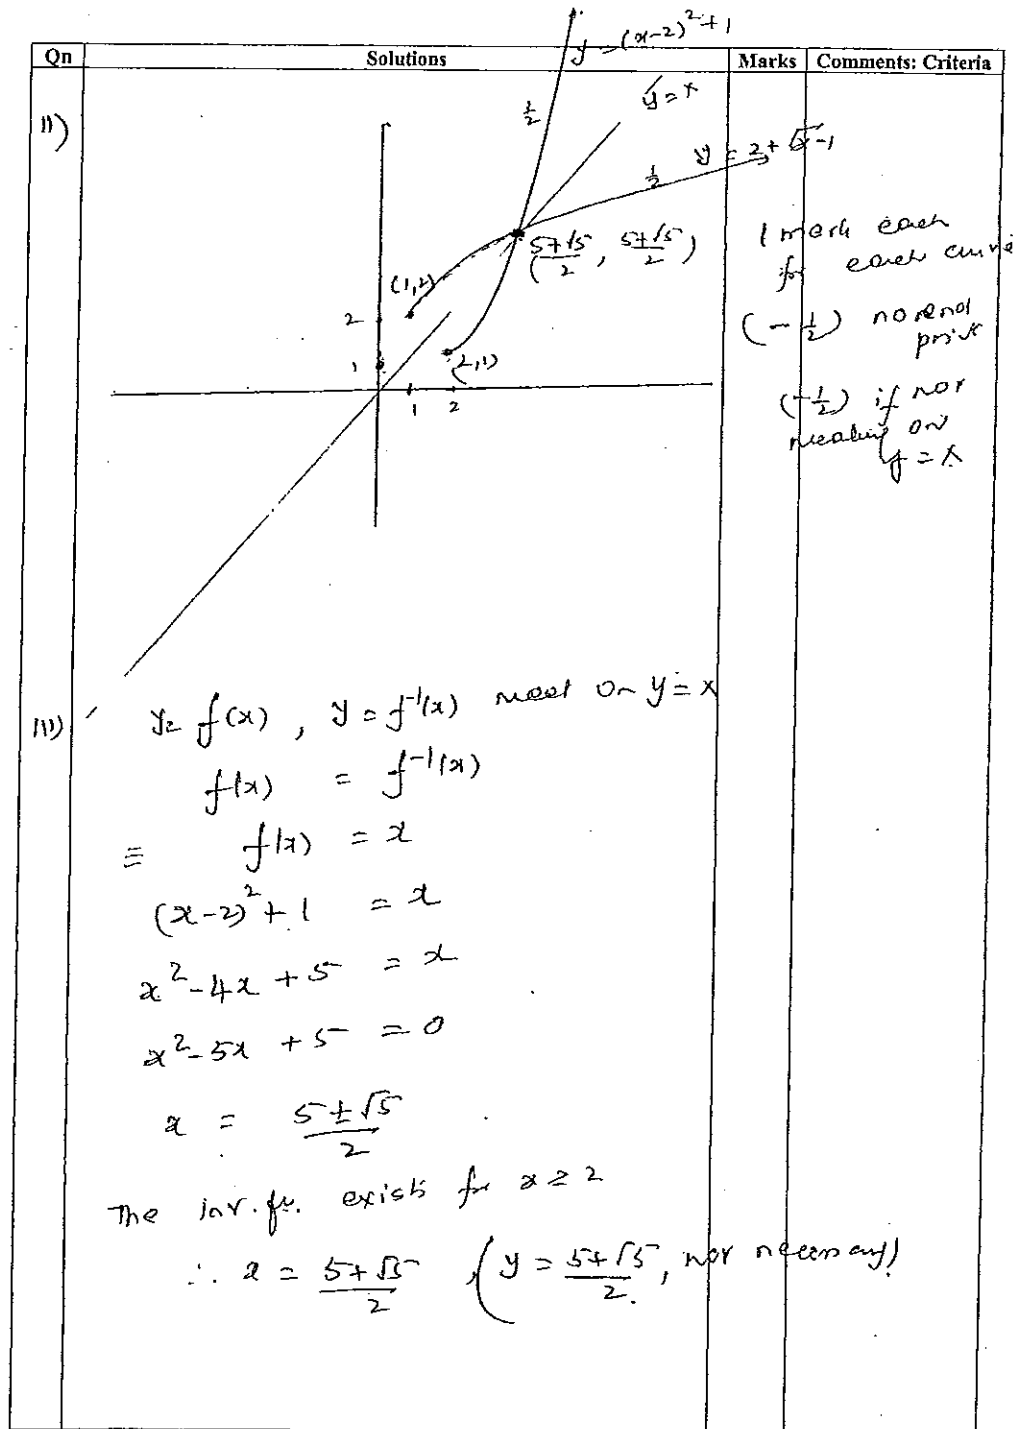 y = (x-2)²+1
Qn Solutions Marks Comments: Criteria
II)
½
y = x
y = 2 + √x-1
½
(5+√5/2, 5+√5/2)
(1,2)
2
1
(2,1)
1 2
1 mark each
for each curve
(-½) no end
point
(-½) if not
meeting on
y = x
III)
y = f(x), y = f⁻¹(x) meet on y = x
f(x) = f⁻¹(x)
≡ f(x) = x
(x-2)²+1 = x
x²-4x+5 = x
x²-5x+5 = 0
x = 5±√5/2
The inv. fn. exists for x ≥ 2
∴ x = 5+√5/2, (y = 5+√5/2, not necessary)